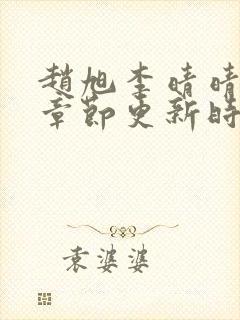 趙旭李晴晴
章節更新時
袁婆婆